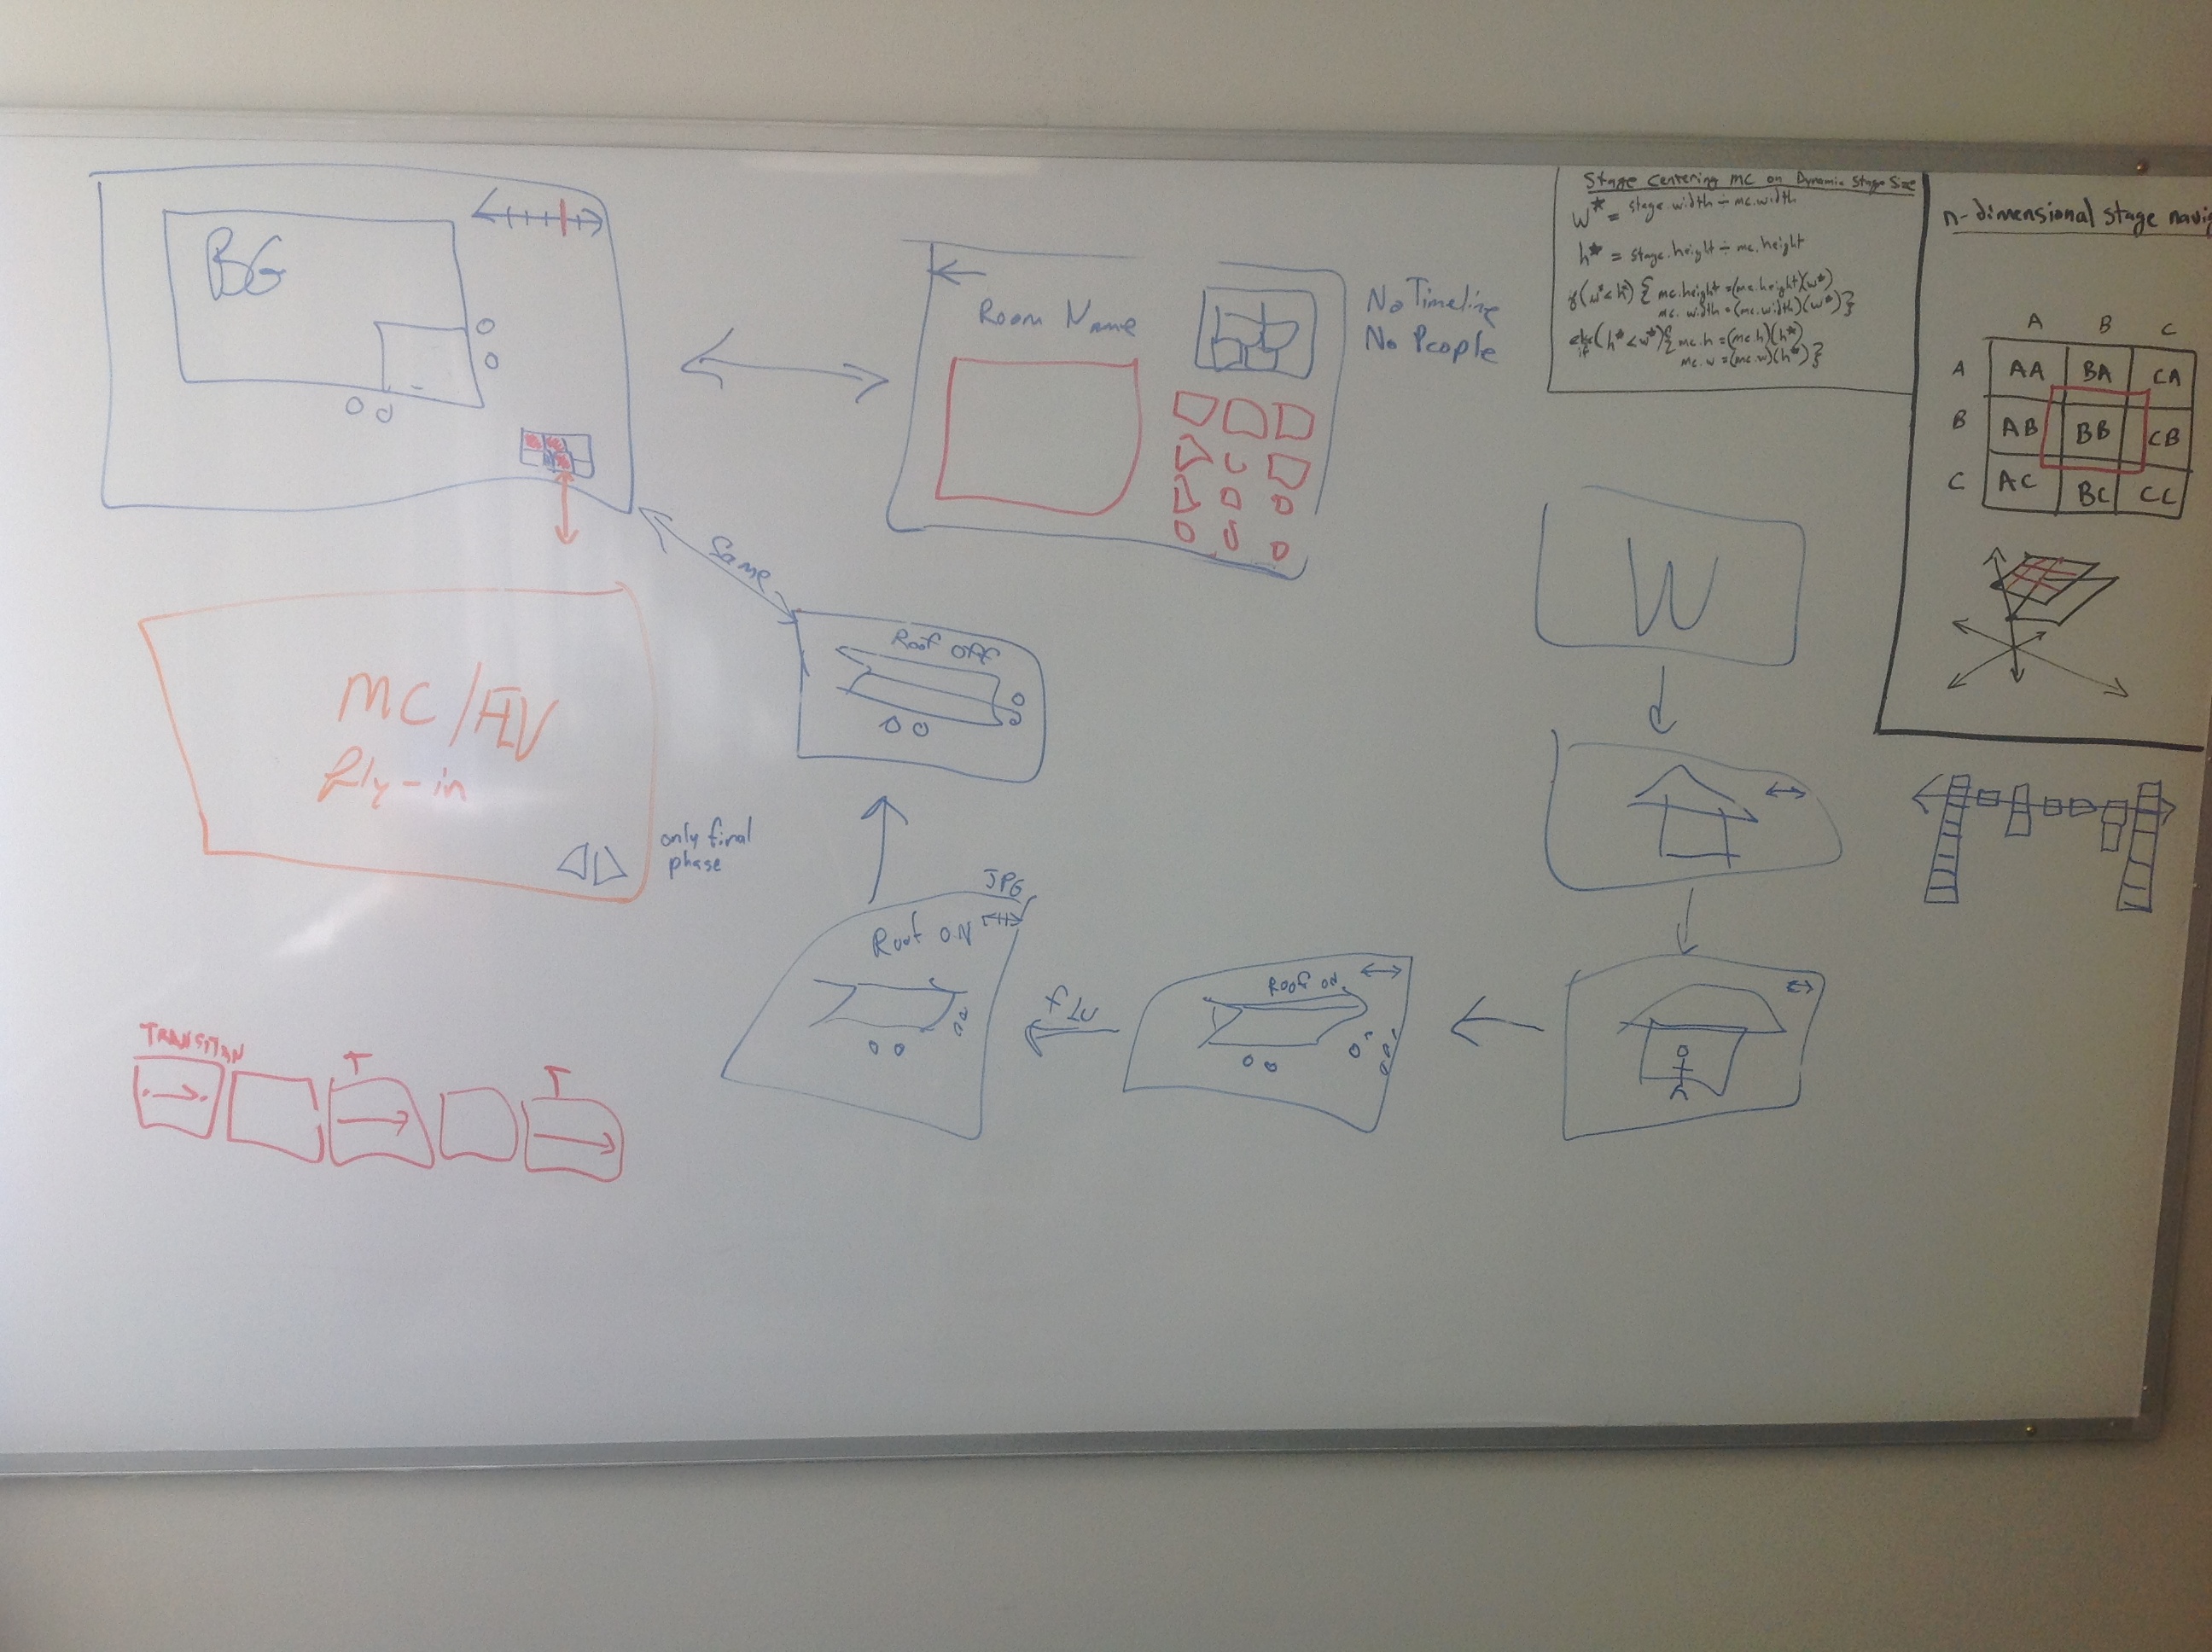 BG
Room Name
No Timeline
No People
Stage Centering MC on Dynamic Stage Size
w* = stage.width ÷ mc.width
h* = stage.height ÷ mc.height
if (w* < h*) { mc.height = (mc.height)(w*)
mc.width = (mc.width)(w*) }
else if (h* < w*) { mc.h = (mc.h)(h*)
mc.w = (mc.w)(h*) }
n-dimensional stage navig
A B C
A AA BA CA
B AB BB CB
C AC BC CC
Same
Roof OFF
W
MC/FLV
fly-in
only final
phase
JPG
Roof ON
FLV
Roof on
TRANSITION
T
T